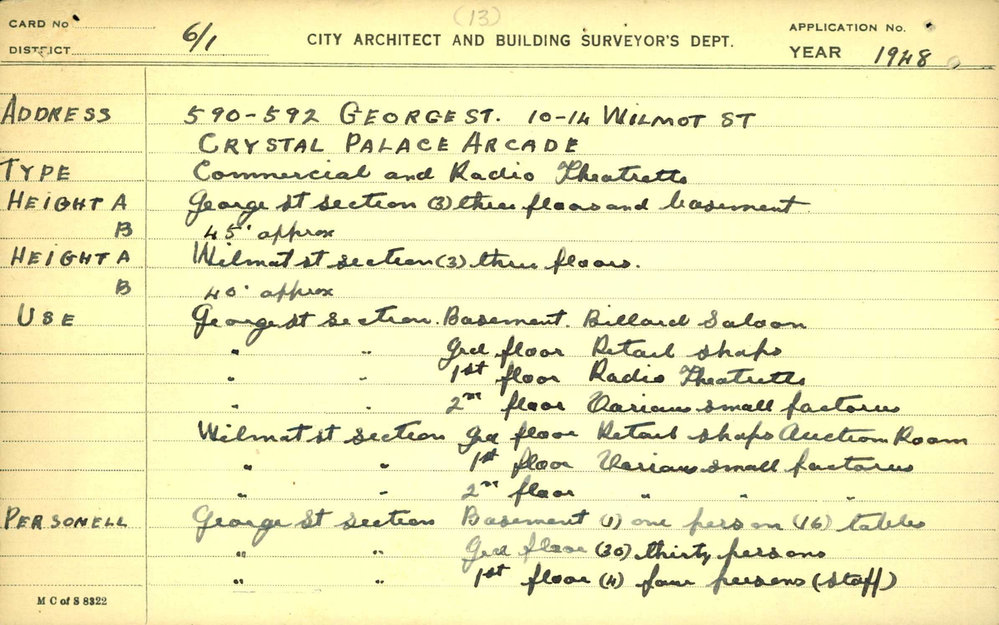 (13)
CARD No
APPLICATION No.
6/1
CITY ARCHITECT AND BUILDING SURVEYOR'S DEPT.
DISTRICT
YEAR 1948
ADDRESS 590-592 GEORGE ST. 10-14 WILMOT ST
CRYSTAL PALACE ARCADE
TYPE Commercial and Radio Theatrette
HEIGHT A George st section (3) three floors and basement
B 45' approx
HEIGHT A Wilmot st section (3) three floors.
B 40' approx
USE George st section. Basement. Billard Saloon
" " Grd floor Retail shops
" " 1st floor Radio Theatrette
" " 2nd floor Various small factories
Wilmot st section Grd floor Retail shops Auction Room
" " 1st floor Various small factories
" " 2nd floor " " "
PERSONELL George St section Basement (1) one person (16) tables
" " Grd floor (30) thirty persons
" " 1st floor (4) four persons (staff)
M C of S 8322